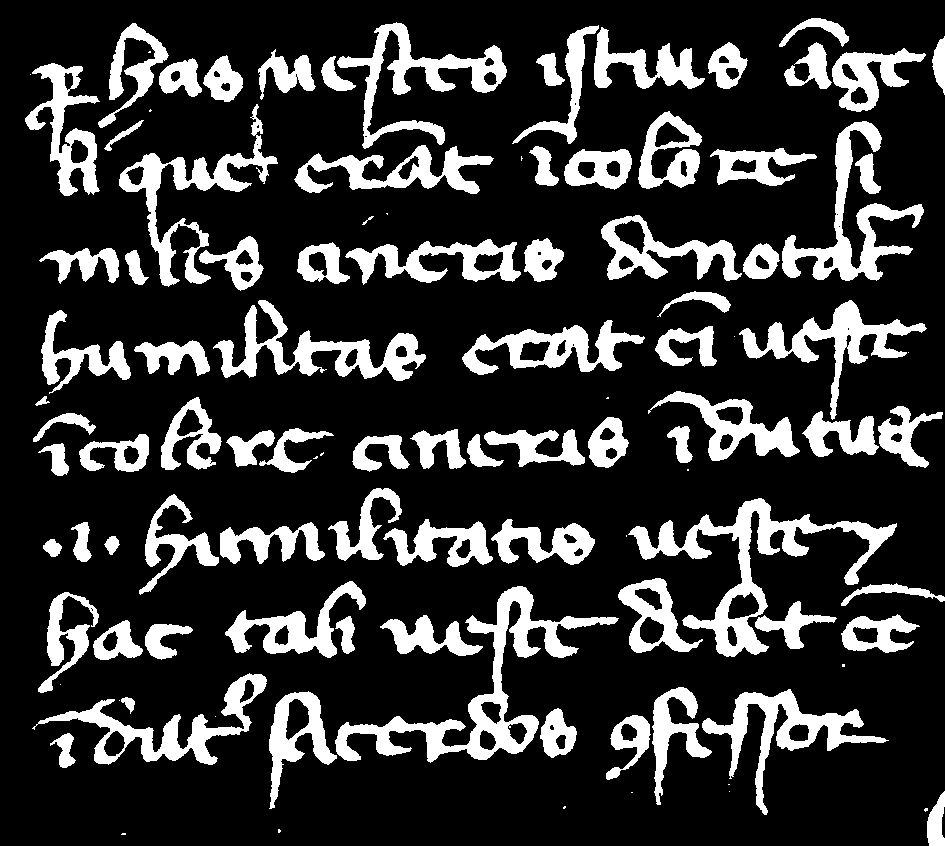 ꝑ has uestes istius āge
li que erāt īcolore si
miles cineris denotat᷑
humilitas erat eī ueste
īcolore cineris īdutus
.i. humilitatis ueste ⁊
hac tali ueste debet eē
īdutꝰ sacerdos ꝯfessor